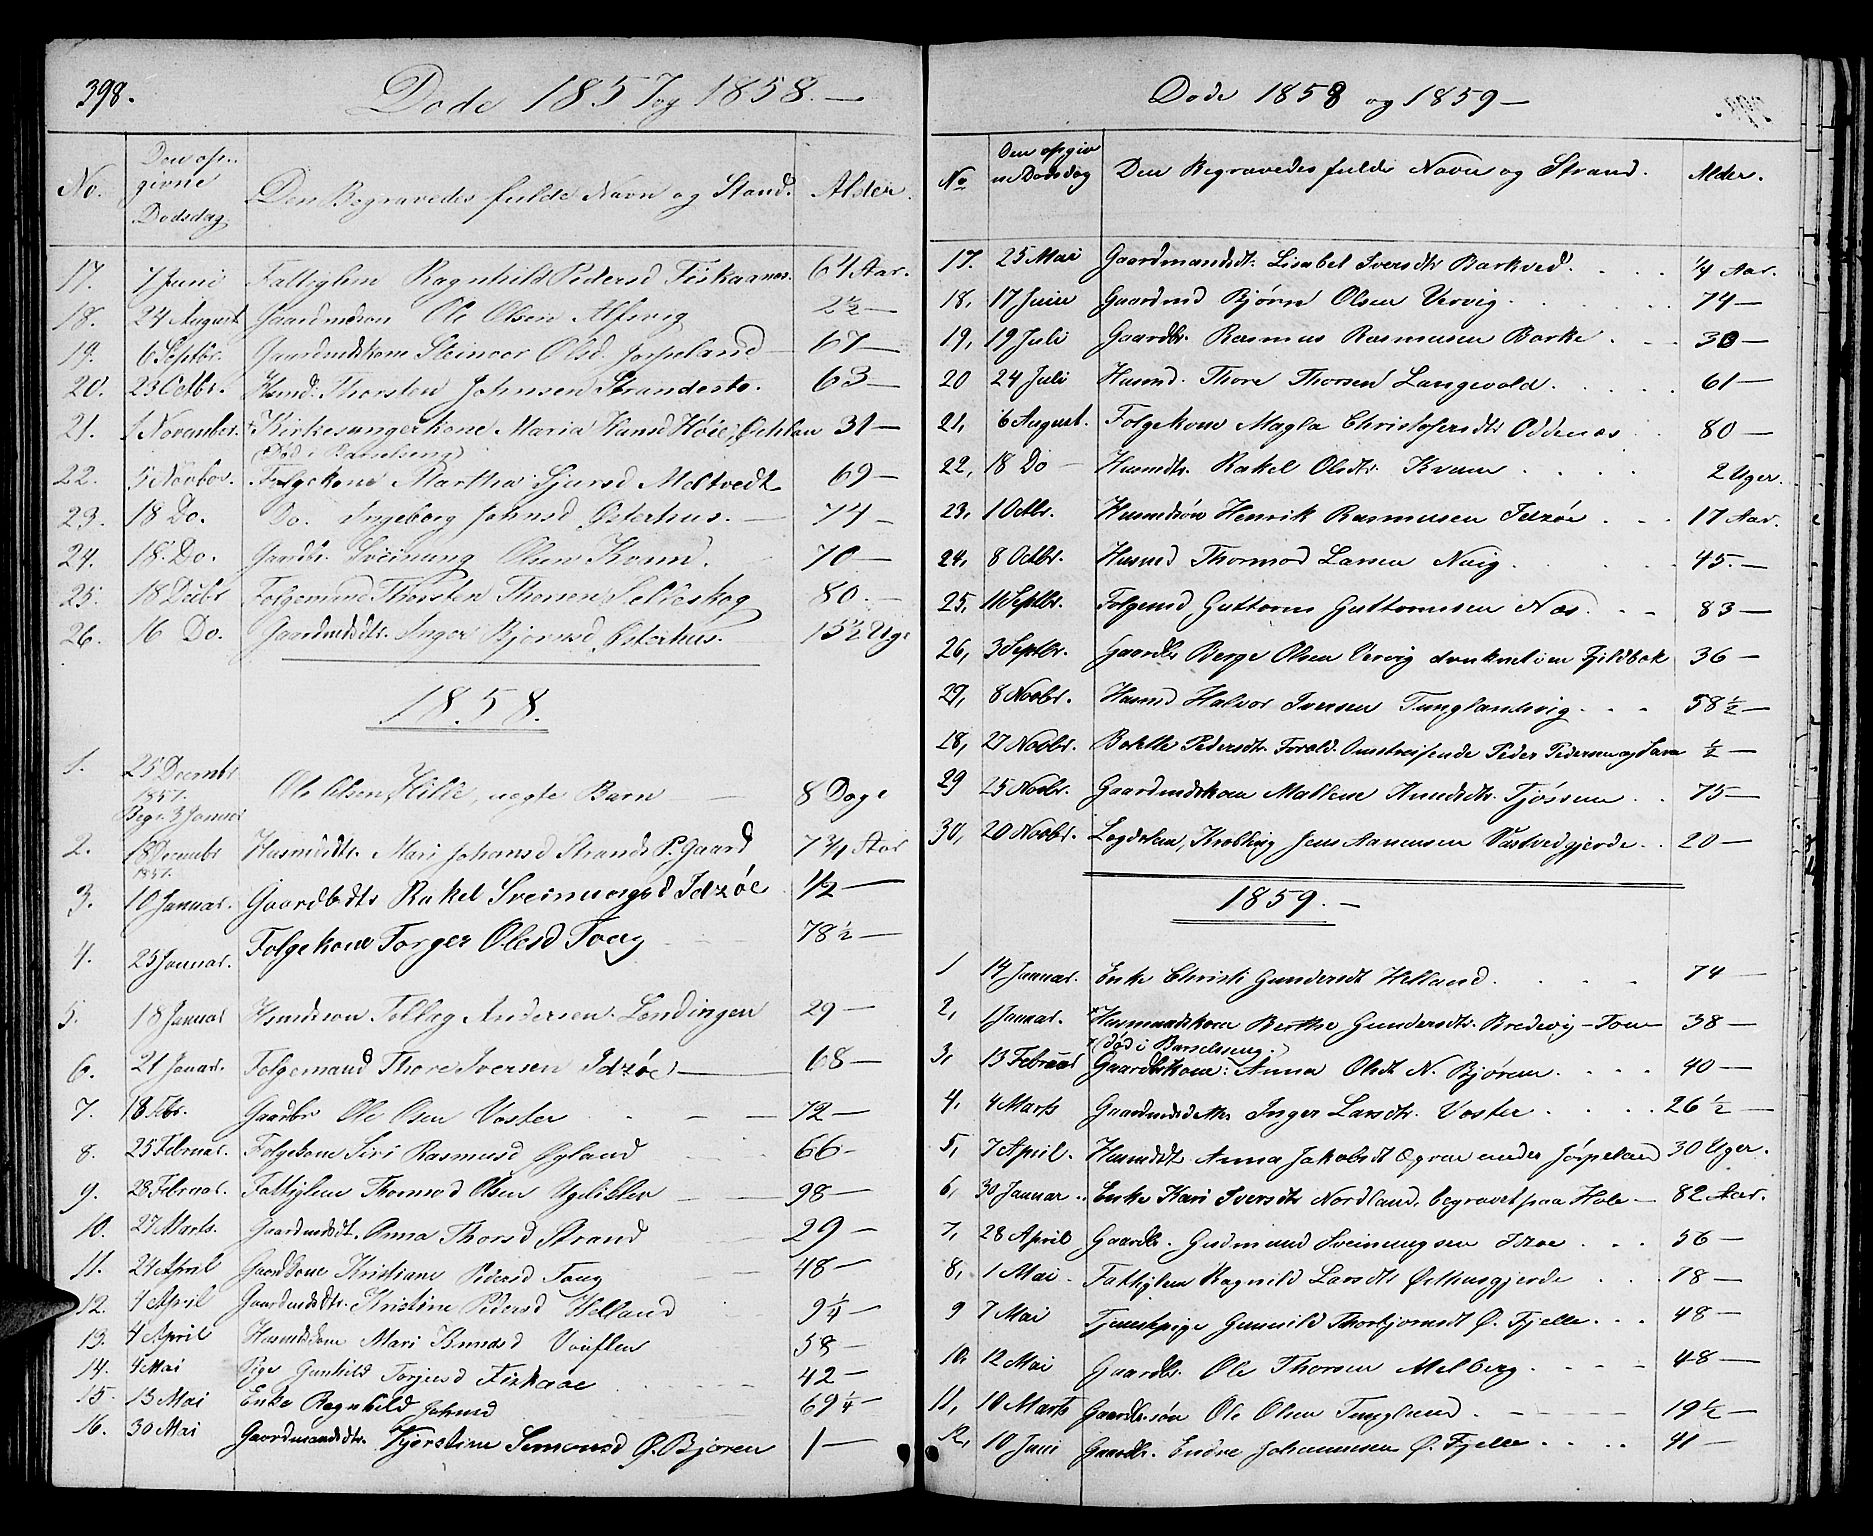 398.
Døde 1857 og 1858. —
No. Den op-
givne
Dødsdag Den Begravedes fulde Navn og Stand. Alder.
17. 7 Juni Fattiglem Ragnhild Pedersd Fiskaaen. 64 Aar.
18. 24 August Gaardmdsøn Ole Olsen Alfsvig 2½ —
19. 6 Septbr. Gaardmdskone Steinvor Olsd. Jørpeland 67 —
20. 23 Octbr. Hsmd. Thorsten Johnsen Strandeste. 63 —
21. 1 November. Kirkesangerkone Maria Hansd Høie, 31 —
(Død i Barselseng)
22. 5 Novbr. Folgekone Martha Sjursd Meltvedt 69 —
23. 18 Do. Do. Ingeborg Johnsd Østerhus. — 74 —
24. 18. Do. Gaardbr. Sveinung Olsen Kvam. 70 —
25. 18 Decbr Folgemand Thorsten Thorsen Selieskog 80. —
26. 16 Do. Gaardmdsdtr. Inger Bjørnsd Østerhus. 15½ Uge
1858.
1. 25 Decembr
1857.
Begr. 3 Januar Ole Olsen Hille, uægte Barn — 8 Dage
2. 18 Decembr
1857. Husmdsdtr. Mari Johansd Strands P. Gaard 7¾ Aar
3. 10 Januar. Gaardbrdtr Rakel Sveinungsd Idzøe 1½ —
4. 25 Januar. Folgekone Torger Olesd Toug 78½ —
5. 18 Januar Hsmdssøn Tolleg Andersen Lendingen 29 —
6. 21 Januar. Folgemand Thore Iversen Idzøe — 68 —
7. 18 Fbr. Gaardbr Ole Olsen Voster — 72 —
8. 25 Februar. Folgekone Siri Rasmusd Øyland 66 —
9. 28 Februar. Fattiglem Thormod Olsen 98 —
10. 27 Marts. Gaardmdsdt. Anna Thorsd Strand 29 —
11. 24 April Gaardkone Kristiane Pedersd Toug 48 —
12. 1 April Gaardmdsdtr. Kristine Pedersd Helland 9¼ —
13. 4 April Husmdskone Mari Knudsd 58 —
14. 4 Mai Pige Gunhild Torjusd Fiskaae 42 —
15. 13 Mai Enke Ragnhild Johnsd 69¼ —
16. 30 Mai Gaardmandsdtr. Kjerstine Simonsd Ø. Bjøren 1 —
Døde 1858 og 1859 —
No Den opgiv
ne Dødsdag Den Begravedes fulde Navn og Strand. Alder.
17. 25 Mai Gaardmandsdt. Lisabet Iversdtr Barkved. ¼ Aar.
18, 17 Juni Gaardmd Bjørn Olsen Vervig. 74 —
19, 19 Juli Gaardbr. Rasmus Rasmusen Barke 30 —
20 24 Juli Husmd. Thore Thorsen Langevold. 61 —
21, 6 August. Folgekone Magla Christofersdtr Oddenæs 80 —
22, 18 Do — Husmdtr. Rakel Olsdtr. Kvam 2 Uger.
23, 1 Octbr. Husmdsøn Henrik Rasmusen Idzøe 17 Aar.
24, 8 Octbr. Husmd Thormod Larsen Nuig. 45. —
25, 11 Septbr. Folgemd Guttorm Guttormsen Næs. 83 —
26, 3 Septbr. Gaardbr Berge Olsen Vervig druknet i en Fjeldbæk 36 —
29, 8 Novbr. Husmd Halvor Iversen Tunglandsvig. 58½ —
18, 27 Novbr. Bolette Pedersdtr. Foræld. Omstreifende Peder Pedersen og Sara ½ —
29 25 Novbr. Gaardmdskone Mallene Knudsdtr. Tjøssem 75 —
30, 20 Novbr. Lægdslem, Krøbling Jens Aanensen Vastvedgjerde 20 —
1859. —
1 14 Januar. Enke Christi Gundersdt Helland. 74 —
2, 1 Januar. Husmandskone Berthe Gundersdtr. Bredevig — Tou 38 —
(død i Barselseng.)
3, 13 Februar Gaardbrkone Anna Olsdt N. Bjøren. 40 —
4, 4 Marts Gaardmdsdtr. Inger Larsdtr. Voster 26½ —
5, 7 April. Husmdsdt. Anna Jakobsdt Øgrae under Jørpeland 30 Uger.
6, 30 Januar. Enke Kari Iversdtr Nordland, begravet paa Hole — 82 Aar.
7, 28 April Gaardbr. Gudmund Sveinungsen Idzøe 56 —
8, 1 Mai Fattiglem Ragnild Larsdtr Østhusgjerde 78 —
9 7 Mai Tjenestpige Gunnild Thorbjørnsdt Ø. Fjelle 48 —
10, 12 Mai Gaardbr. Ole Thorsen Melberg 48 —
11, 10 Marts Gaardbr.søn Ole Olsen Tungland. 19½ —
12, 10 Juni Gaardbr. Endre Johannesen Ø. Fjelle 41 —